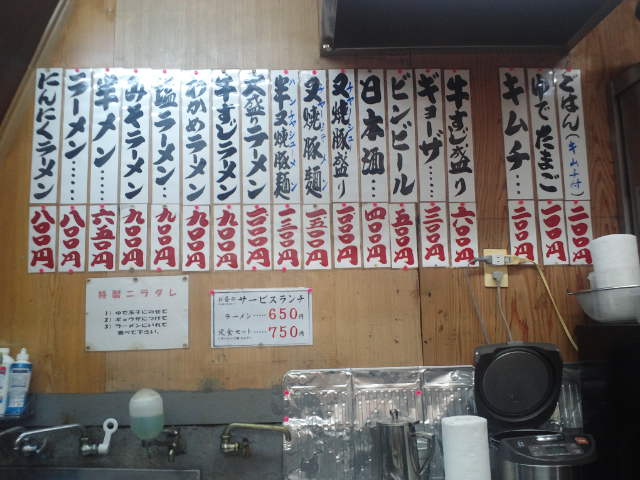 ごはん(キムチ付) 二〇〇円
ゆでたまご 一〇〇円
キムチ… 二〇〇円
牛すじ盛り 六〇〇円
ギョーザ…… 三〇〇円
ビンビール 五〇〇円
日本酒… 四〇〇円
叉焼豚盛り
叉焼豚麺
半叉焼豚麺
大盛ラーメン
牛すじラーメン 九〇〇円
わかめラーメン 九〇〇円
塩ラーメン 九〇〇円
みそラーメン 九〇〇円
半メン…… 六五〇円
ラーメン…… 八〇〇円
にんにくラーメン 八〇〇円
特製ニラダレ
1)ゆで玉子にのせて
2)ギョウザにつけて
3)ラーメンにいれて
食べて下さい。
お昼のサービスランチ
ラーメン……650円
定食セット……750円